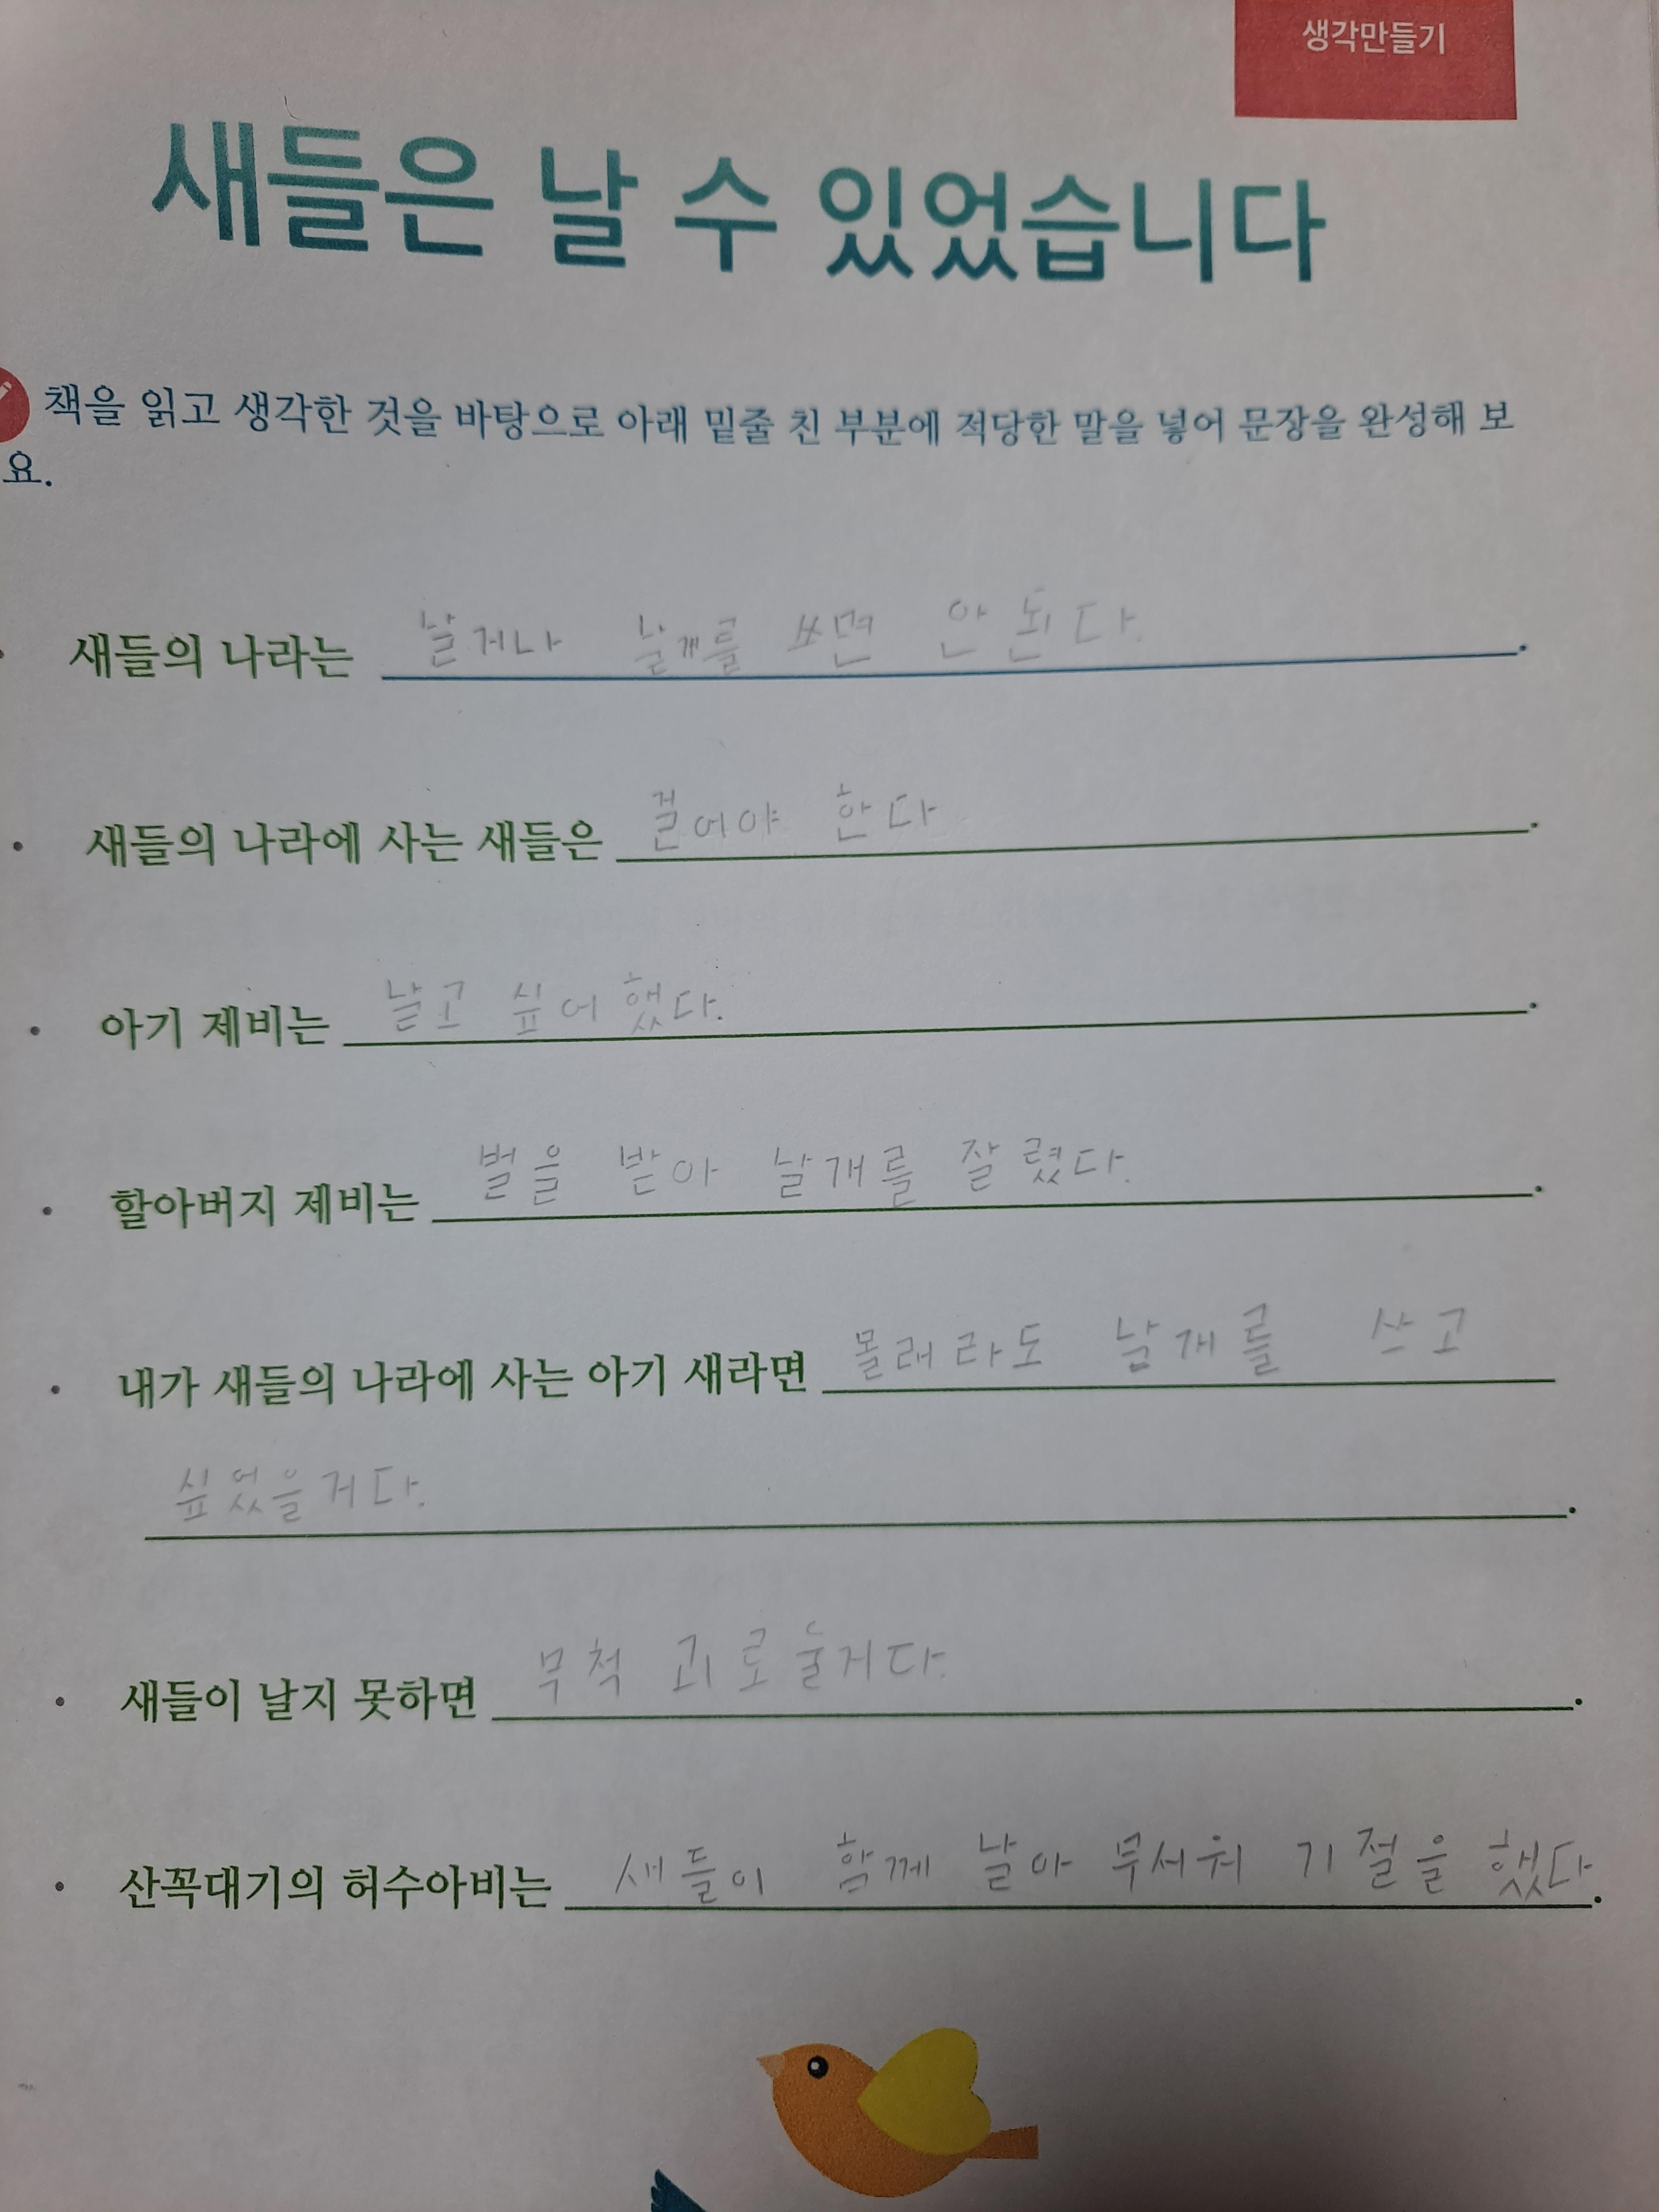 생각만들기
새들은 날 수 있었습니다
책을 읽고 생각한 것을 바탕으로 아래 밑줄 친 부분에 적당한 말을 넣어 문장을 완성해 보
요.
새들의 나라는 날거나 날개를 쓰면 안 된다.
· 새들의 나라에 사는 새들은 걸어야 한다.
· 아기 제비는 날고 싶어 했다.
· 할아버지 제비는 벌을 받아 날개를 잘렸다.
· 내가 새들의 나라에 사는 아기 새라면 몰래라도 날개를 쓰고
싶었을거다.
· 새들이 날지 못하면 무척 괴로울거다.
· 산꼭대기의 허수아비는 새들이 함께 날아 무서워 기절을 했다.